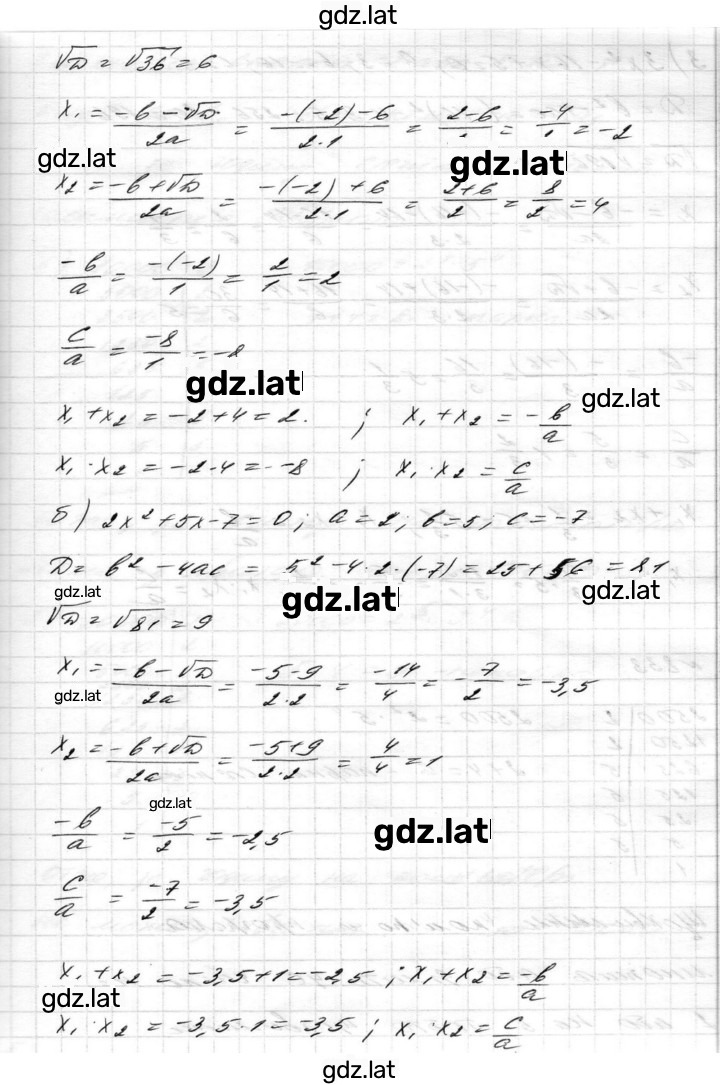 gdz.lat
√D = √36 = 6
x₁ = (-b - √D)/2a = (-(-2) - 6)/(2·1) = (2-6)/1 = -4/1 = -2
gdz.lat
gdz.lat
x₂ = (-b + √D)/2a = (-(-2) + 6)/(2·1) = (2+6)/2 = 8/2 = 4
-b/a = -(-2)/1 = 2/1 = 2
c/a = -8/1 = -8
gdz.lat
gdz.lat
x₁ + x₂ = -2 + 4 = 2. ; x₁ + x₂ = -b/a
x₁ · x₂ = -2·4 = -8 ; x₁ · x₂ = c/a
б) 2x² + 5x - 7 = 0; a = 2; b = 5; c = -7
D = b² - 4ac = 5² - 4·2·(-7) = 25 + 56 = 81
gdz.lat
gdz.lat
gdz.lat
√D = √81 = 9
x₁ = (-b - √D)/2a = (-5-9)/(2·2) = -14/4 = -7/2 = -3,5
gdz.lat
x₂ = (-b + √D)/2a = (-5+9)/(2·2) = 4/4 = 1
gdz.lat
-b/a = -5/2 = -2,5
gdz.lat
c/a = -7/2 = -3,5
x₁ + x₂ = -3,5 + 1 = -2,5 ; x₁ + x₂ = -b/a
gdz.lat
x₁ · x₂ = -3,5 · 1 = -3,5 ; x₁ · x₂ = c/a
gdz.lat